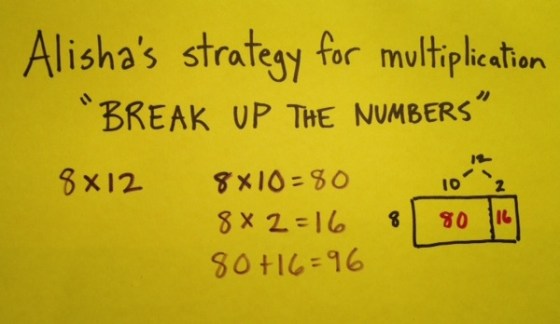 Alisha's strategy for multiplication
"BREAK UP THE NUMBERS"
8×12
8×10=80
8×2=16
80+16=96
12
10 2
8 80 16